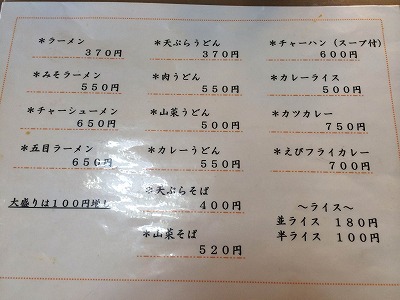 ＊ラーメン
３７０円
＊みそラーメン
５５０円
＊チャーシューメン
６５０円
＊五目ラーメン
６５０円
大盛りは１００円増し
＊天ぷらうどん
３７０円
＊肉うどん
５５０円
＊山菜うどん
５００円
＊カレーうどん
５５０円
＊天ぷらそば
４００円
＊山菜そば
５２０円
＊チャーハン（スープ付）
６００円
＊カレーライス
５００円
＊カツカレー
７５０円
＊えびフライカレー
７００円
～ライス～
並ライス １８０円
半ライス １００円